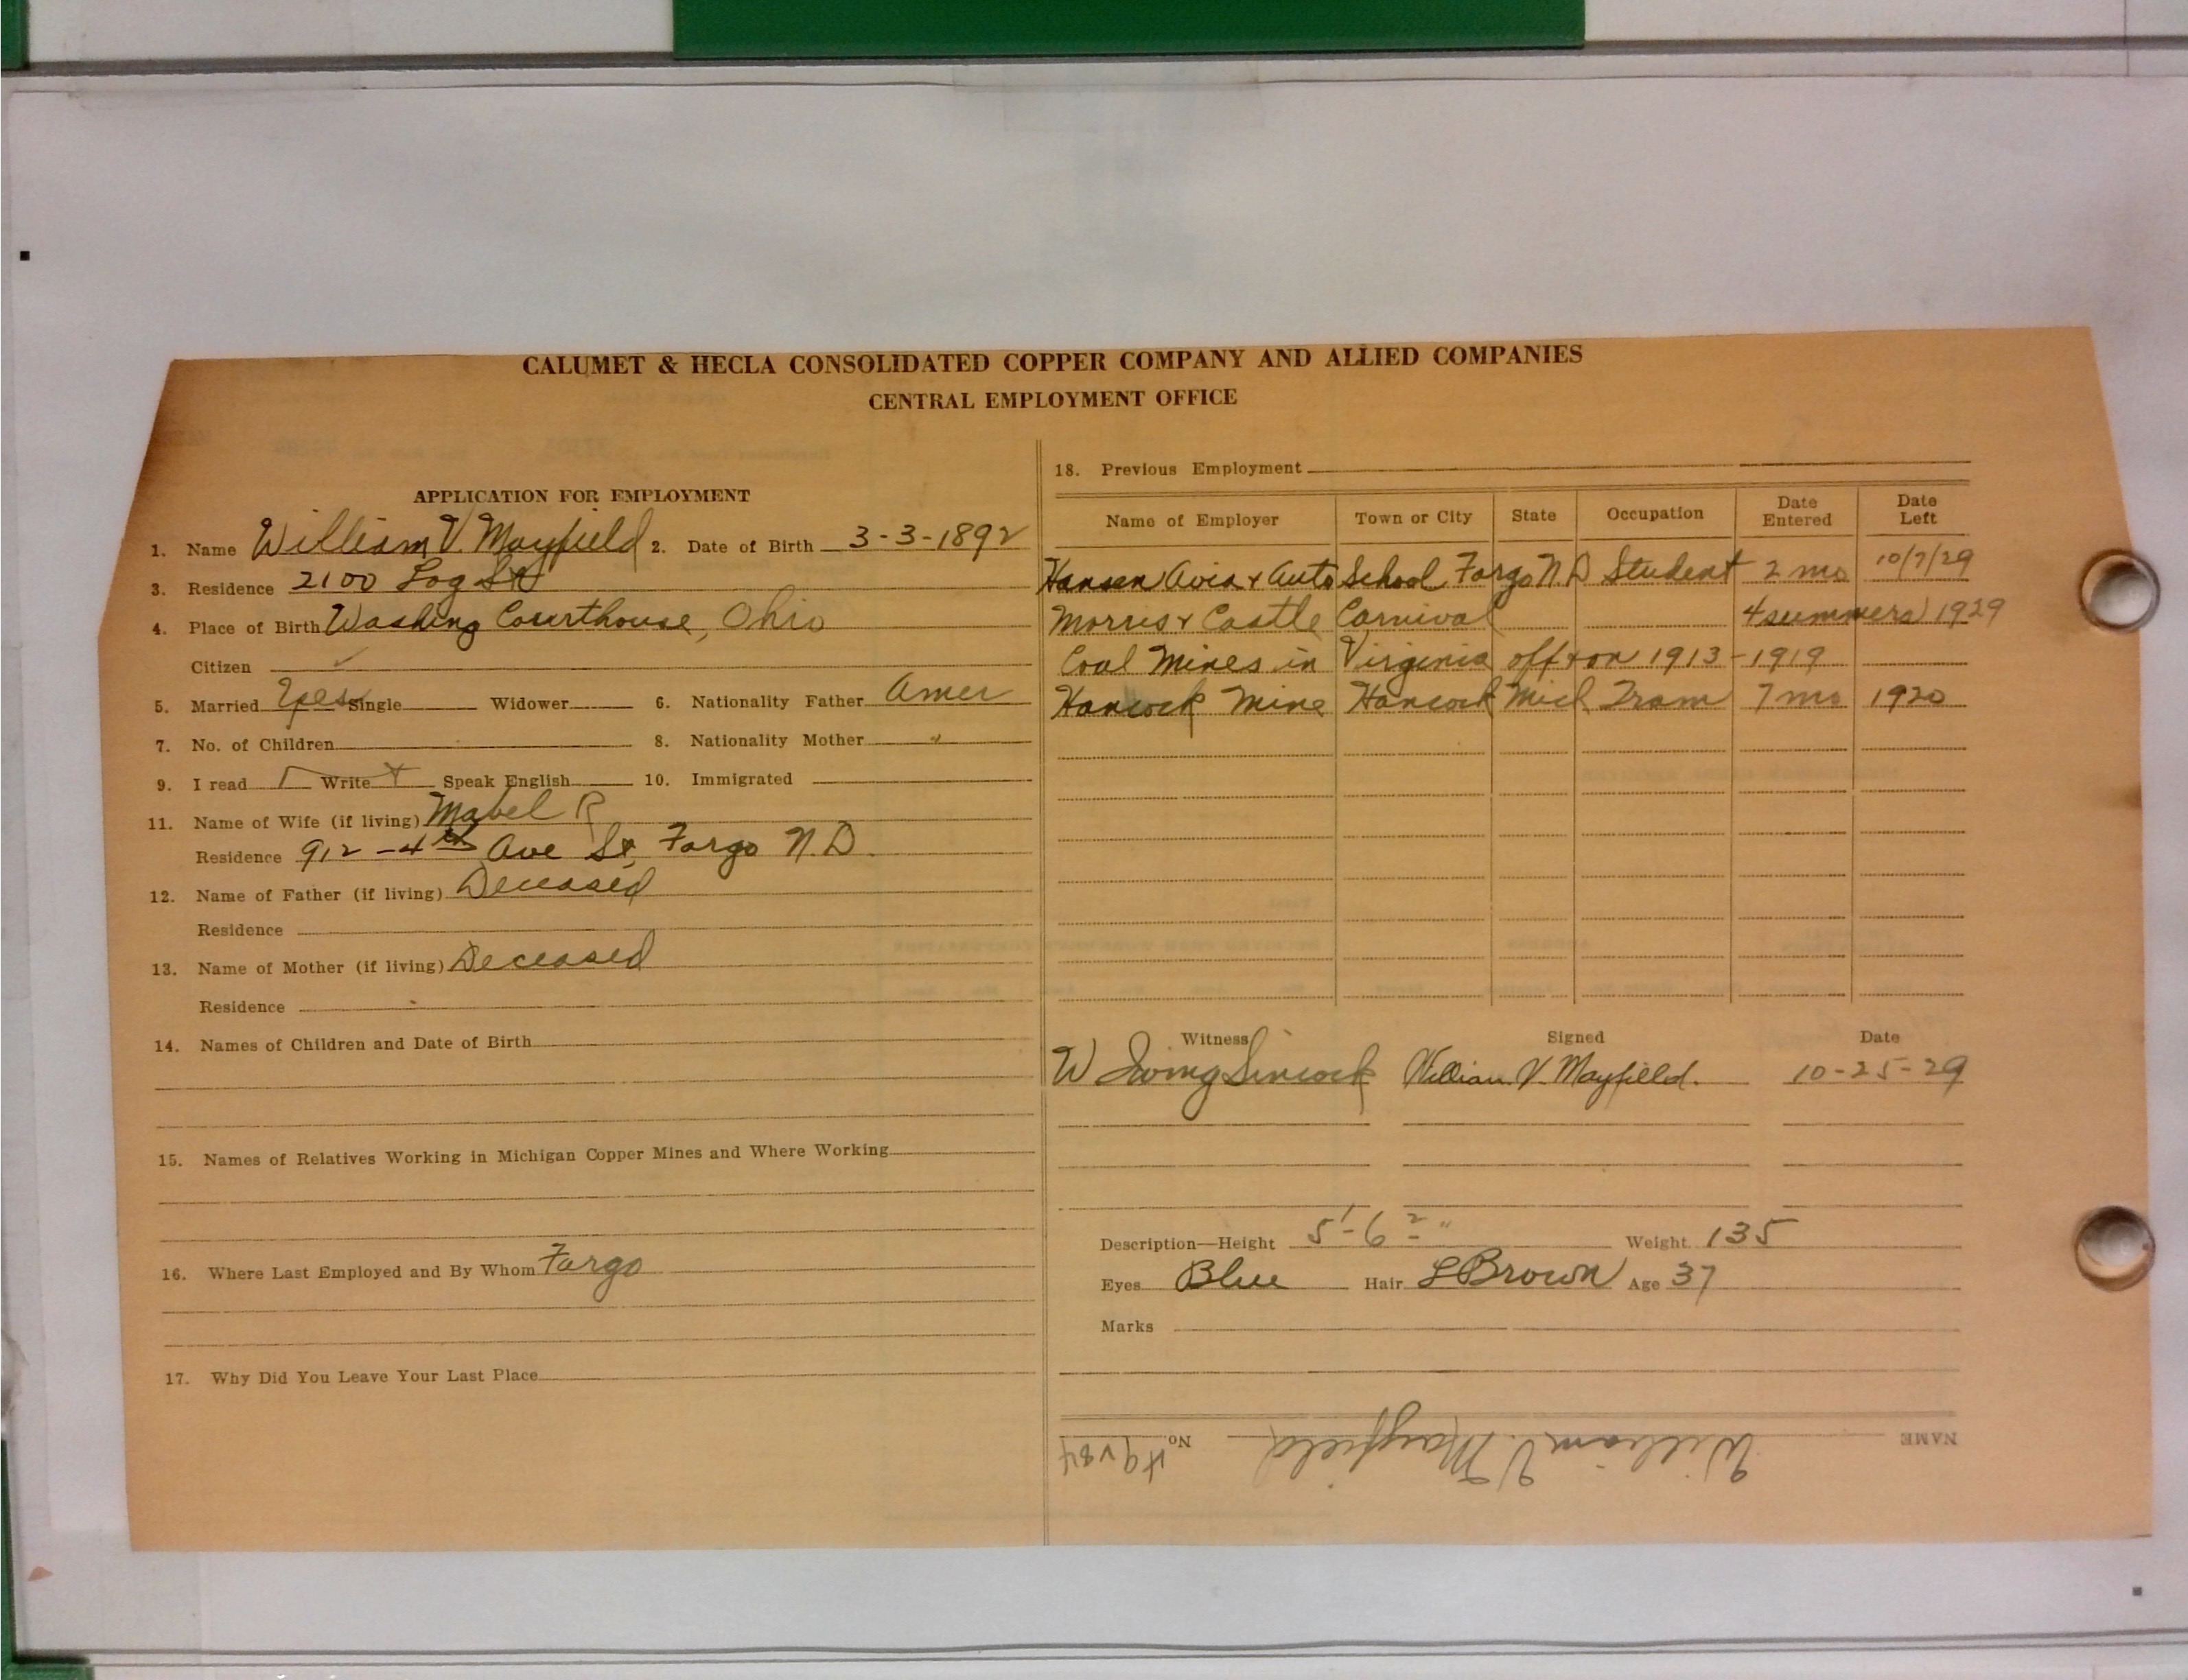 CALUMET & HECLA CONSOLIDATED COPPER COMPANY AND ALLIED COMPANIES
CENTRAL EMPLOYMENT OFFICE
APPLICATION FOR EMPLOYMENT
1. Name William V. Mayfield 2. Date of Birth 3-3-1892
3. Residence 2100 Log St
4. Place of Birth Washing Courthouse, Ohio
Citizen ✓
5. Married Yes Single Widower 6. Nationality Father Amer
7. No. of Children 8. Nationality Mother "
9. I read Write Speak English 10. Immigrated
11. Name of Wife (if living) Mabel R
Residence 912 - 4th Ave So, Fargo N.D.
12. Name of Father (if living) Deceased
Residence
13. Name of Mother (if living) Deceased
Residence
14. Names of Children and Date of Birth
15. Names of Relatives Working in Michigan Copper Mines and Where Working
16. Where Last Employed and By Whom Fargo
17. Why Did You Leave Your Last Place
18. Previous Employment
Name of Employer Town or City State Occupation Date Entered Date Left
Hansen Avia + Auto School Fargo N.D Student 2 mo 10/7/29
Morris + Castle Carnival 4 summers 1929
Coal Mines in Virginia off + on 1913-1919
Hancock Mine Hancock Mich Tram 7 mo 1920
Witness Signed Date
W Irving Sincock William V. Mayfield. 10-25-29
Description—Height 5'-6 2" Weight 135
Eyes Blue Hair L Brown Age 37
Marks
NAME William V. Mayfield No.